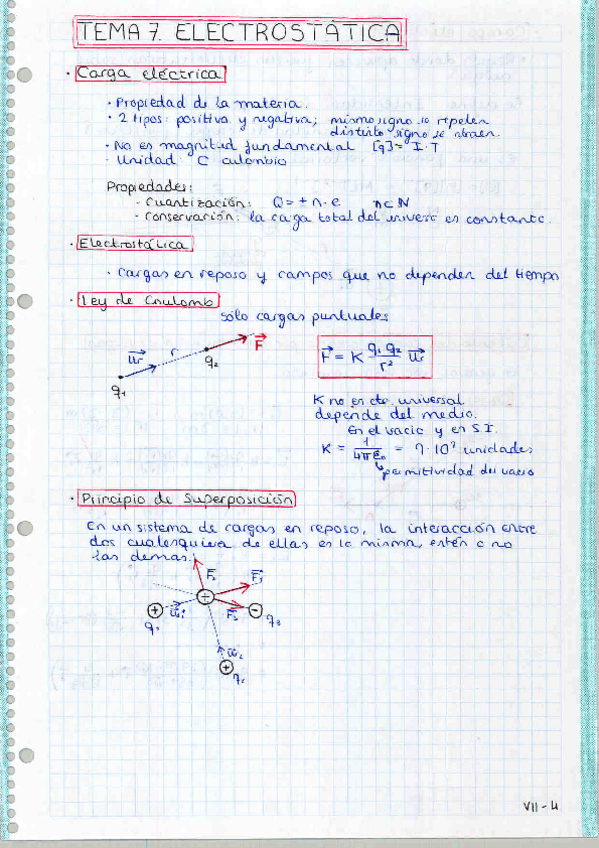 TEMA 7. ELECTROSTÁTICA
· Carga eléctrica
· Propiedad de la materia.
· 2 tipos: positiva y negativa; mismo signo se repelen
distinto signo se atraen.
· No es magnitud fundamental [q] = I·T
· Unidad C culombio
Propiedades:
- Cuantización: Q = ± n·e n∈N
- Conservación: la carga total del universo es constante.
· Electrostática
· Cargas en reposo y campos que no dependen del tiempo
· Ley de Coulomb
sólo cargas puntuales
u⃗r r q2 F⃗
q1
F⃗ = K q1 q2 / r² u⃗r
K no es cte. universal
depende del medio.
En el vacío y en S.I.
K = 1/4πε0 = 9·10⁹ unidades
permitividad del vacío
· Principio de Superposición
En un sistema de cargas en reposo, la interacción entre
dos cualesquiera de ellas es la misma, estén o no
las demás.
F⃗2 F⃗1
+ u⃗1 + F⃗3 −
q1 q3
u⃗2
+
q2
VII - 4